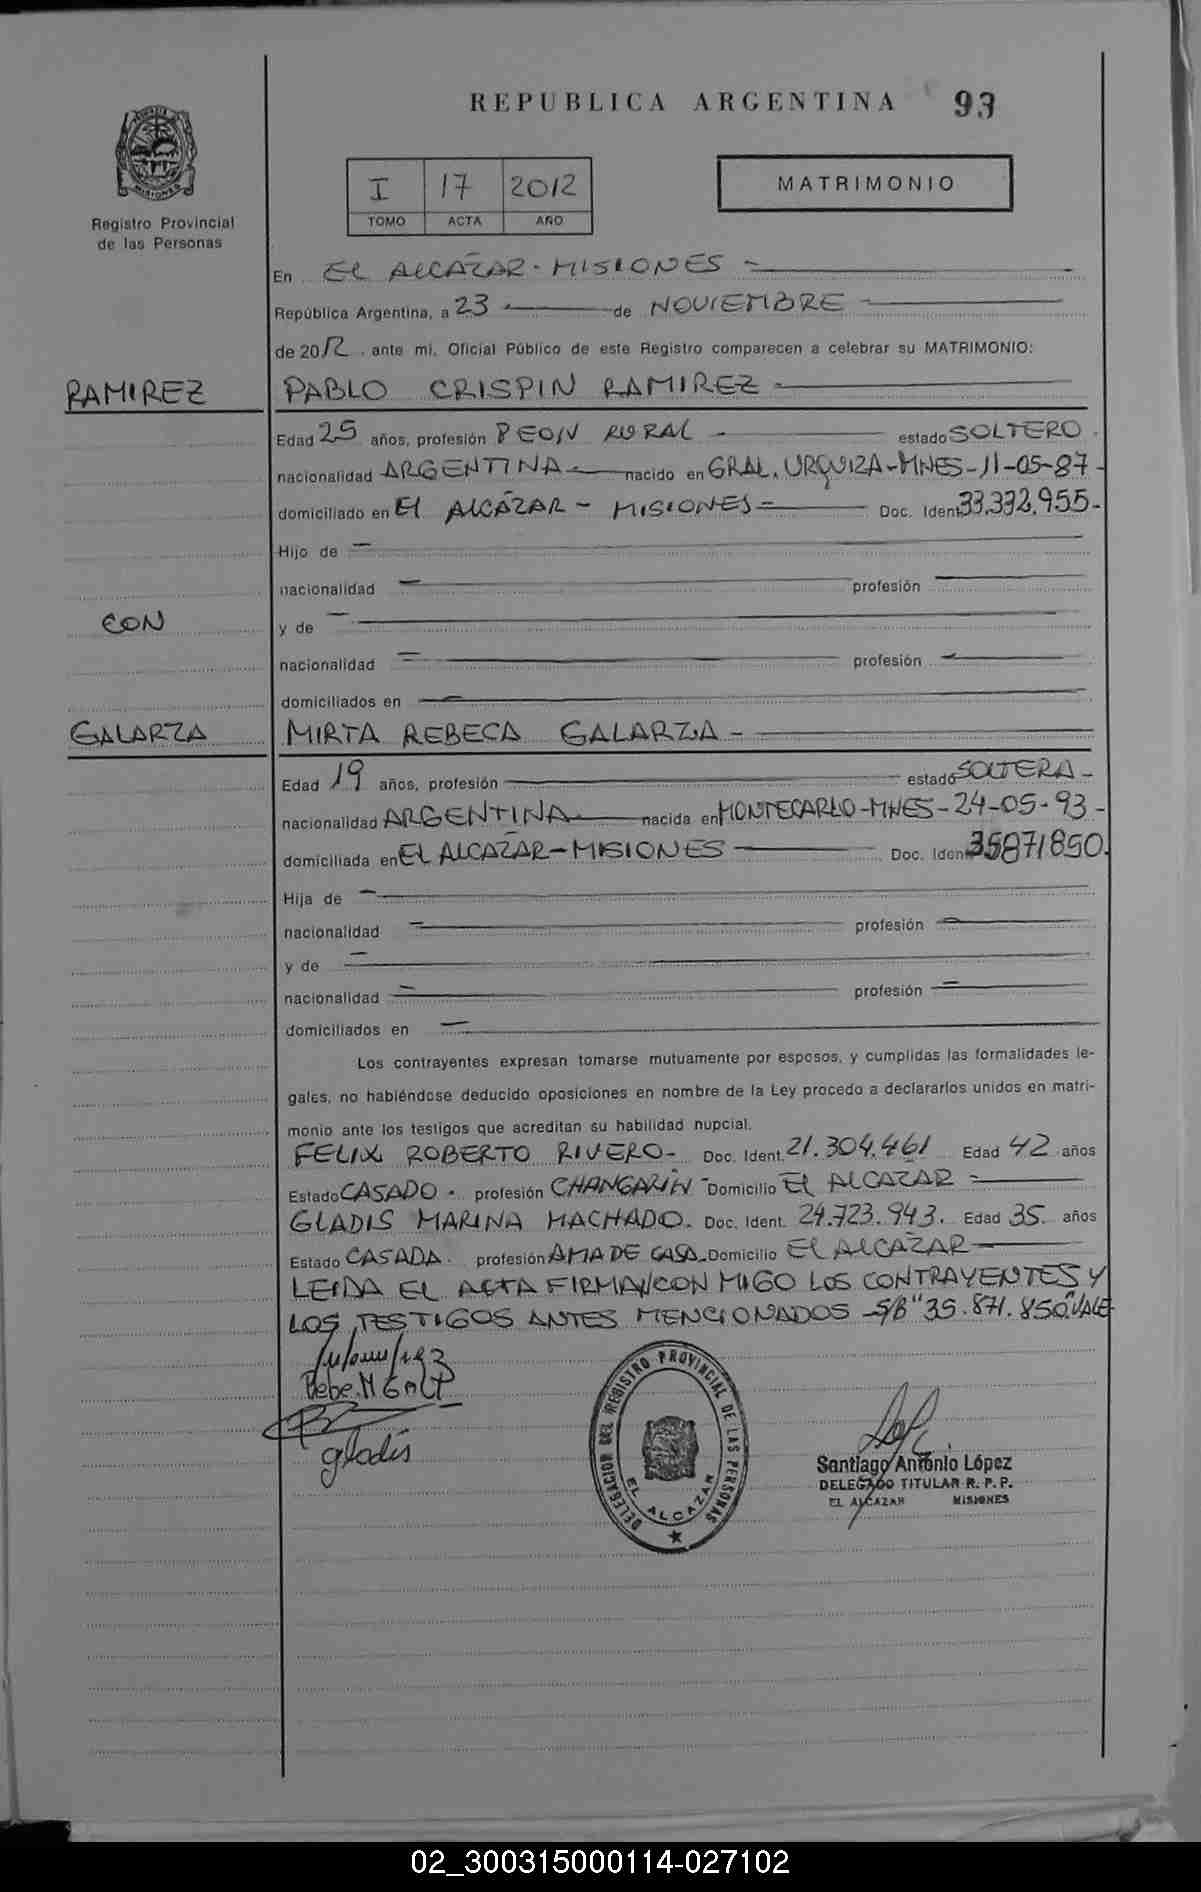 REPUBLICA ARGENTINA 93
Registro Provincial
de las Personas
I 17 2012
TOMO ACTA AÑO
MATRIMONIO
En EL ALCAZAR - MISIONES -
República Argentina, a 23 de NOVIEMBRE
de 2012, ante mi, Oficial Público de este Registro comparecen a celebrar su MATRIMONIO:
RAMIREZ PABLO CRISPIN RAMIREZ -
Edad 25 años, profesión PEON RURAL - estado SOLTERO.
nacionalidad ARGENTINA - nacido en GRAL. URQUIZA-MNES-11-05-87-
domiciliado en El ALCÁZAR - MISIONES - Doc. Ident. 33.332.955-
Hijo de -
nacionalidad - profesión -
CON y de -
nacionalidad - profesión -
domiciliados en -
GALARZA MIRTA REBECA GALARZA -
Edad 19 años, profesión estado SOLTERA-
nacionalidad ARGENTINA nacida en MONTECARLO-MNES-24-05-93-
domiciliada en EL ALCAZAR-MISIONES Doc. Ident. 35871850.
Hija de -
nacionalidad - profesión -
y de -
nacionalidad - profesión -
domiciliados en -
Los contrayentes expresan tomarse mutuamente por esposos, y cumplidas las formalidades le-
gales, no habiéndose deducido oposiciones en nombre de la Ley procedo a declararlos unidos en matri-
monio ante los testigos que acreditan su habilidad nupcial.
FELIX ROBERTO RIVERO- Doc. Ident. 21.304.461 Edad 42 años
Estado CASADO. profesión CHANGARIN - Domicilio El ALCAZAR -
GLADIS MARINA MACHADO. Doc. Ident. 24.723.943. Edad 35 años
Estado CASADA. profesión AMA DE CASA - Domicilio EL ALCAZAR
LEIDA EL ACTA FIRMAN CON MIGO LOS CONTRAYENTES Y
LOS TESTIGOS ANTES MENCIONADOS - S/B "35.871.850" VALE
gladis
DELEGACION DEL REGISTRO PROVINCIAL DE LAS PERSONAS
EL ALCAZAR
Santiago Antonio López
DELEGADO TITULAR R. P. P.
EL ALCAZAR MISIONES
02_300315000114-027102